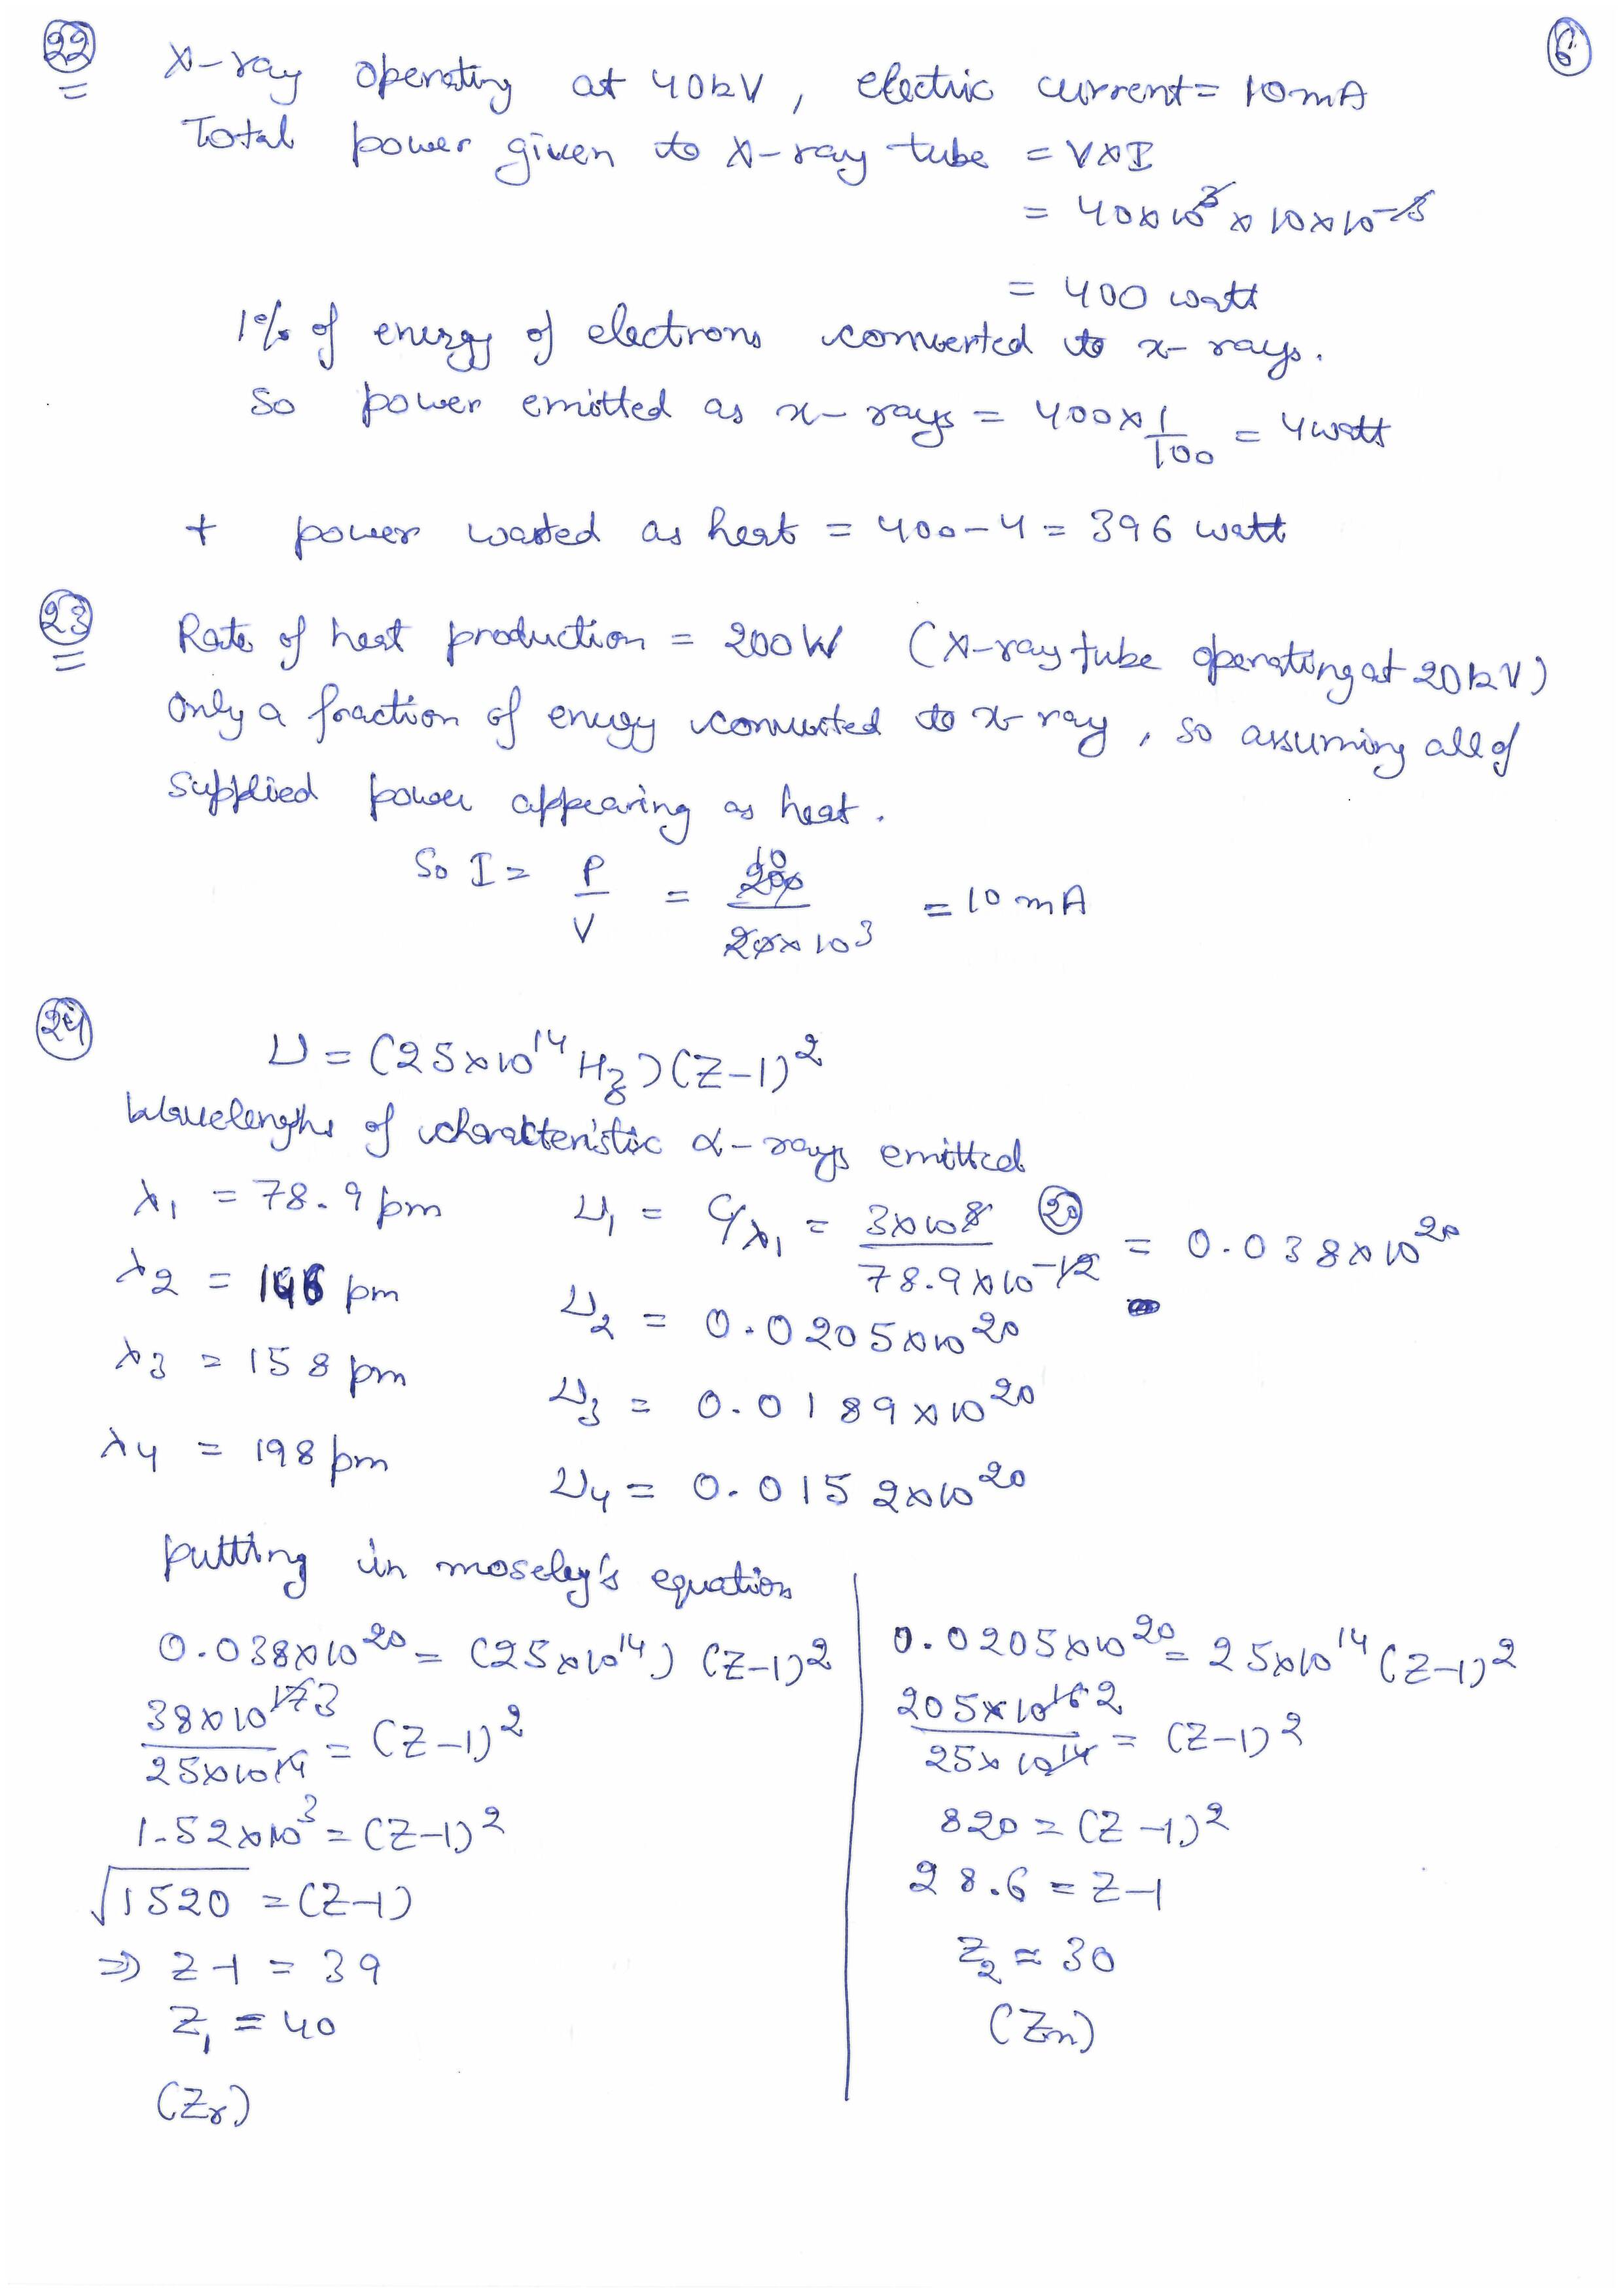 22 X-ray operating at 40kV, electric current = 10mA 6
Total power given to X-ray tube = V×I
= 40×10³ × 10×10⁻³
= 400 watt
1% of energy of electrons converted to x-rays.
So power emitted as x-rays = 400×1/100 = 4watt
+ power wasted as heat = 400-4 = 396 watt
23 Rate of heat production = 200W (X-ray tube operating at 20kV)
Only a fraction of energy converted to x-ray, so assuming all of
supplied power appearing as heat.
So I = P/V = 200/20×10³ = 10mA
24
ν = (25×10¹⁴ Hz)(Z-1)²
Wavelengths of characteristic α-rays emitted
λ1 = 78.9 pm ν1 = c/λ1 = 3×10⁸/78.9×10⁻¹² 20 = 0.038×10²⁰
λ2 = 146 pm ν2 = 0.0205×10²⁰
λ3 = 158 pm ν3 = 0.0189×10²⁰
λ4 = 198 pm ν4 = 0.0152×10²⁰
putting in moseley's equation
0.038×10²⁰ = (25×10¹⁴) (Z-1)²
38×10¹⁷ 3/25×10¹⁴ = (Z-1)²
1.52×10³ = (Z-1)²
√1520 = (Z-1)
⇒ Z-1 = 39
Z1 = 40
(Zr)
0.0205×10²⁰ = 25×10¹⁴ (Z-1)²
205×10¹⁶ 2/25×10¹⁴ = (Z-1)²
820 = (Z-1)²
28.6 = Z-1
Z2 ≈ 30
(Zn)